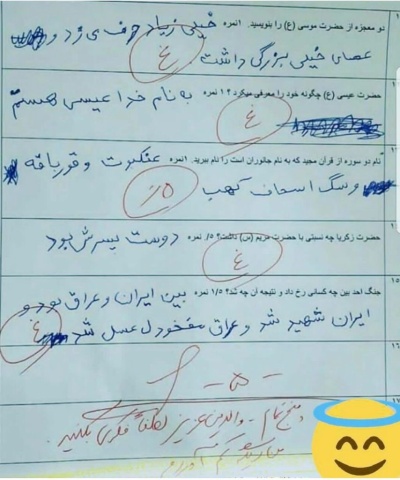 دو معجزه از حضرت موسی (ع) را بنویسید. ۱نمره خیلی زیاد حرف می زد و
عصای خیلی بزرگی داشت. غ
حضرت عیسی (ع) چگونه خود را معرفی میکرد؟ ۱ نمره به نام خدا عیسی هستم
غ
نام دو سوره از قرآن مجید که به نام جانوران است را نام ببرید. ۱نمره عنکبوت و قورباقه
و سگ اسحاف کهب ۰/۵
حضرت زکریا چه نسبتی با حضرت مریم (س) داشت؟ ۰/۵ نمره دوست پسرش بود
غ
جنگ احد بین چه کسانی رخ داد و نتیجه آن چه شد؟ ۱/۵ نمره بین ایران و عراق بود و
ایران شهید شد و عراق مفخود ل عسل شد غ
۱۶
- ۵ -
والدین عزیز لطفاً فکری بکنید.